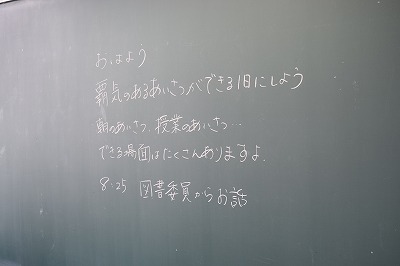 おはよう
覇気のあるあいさつができる1日にしよう
朝のあいさつ、授業のあいさつ…
できる場面はたくさんありますよ.
8:25 図書委員からお話